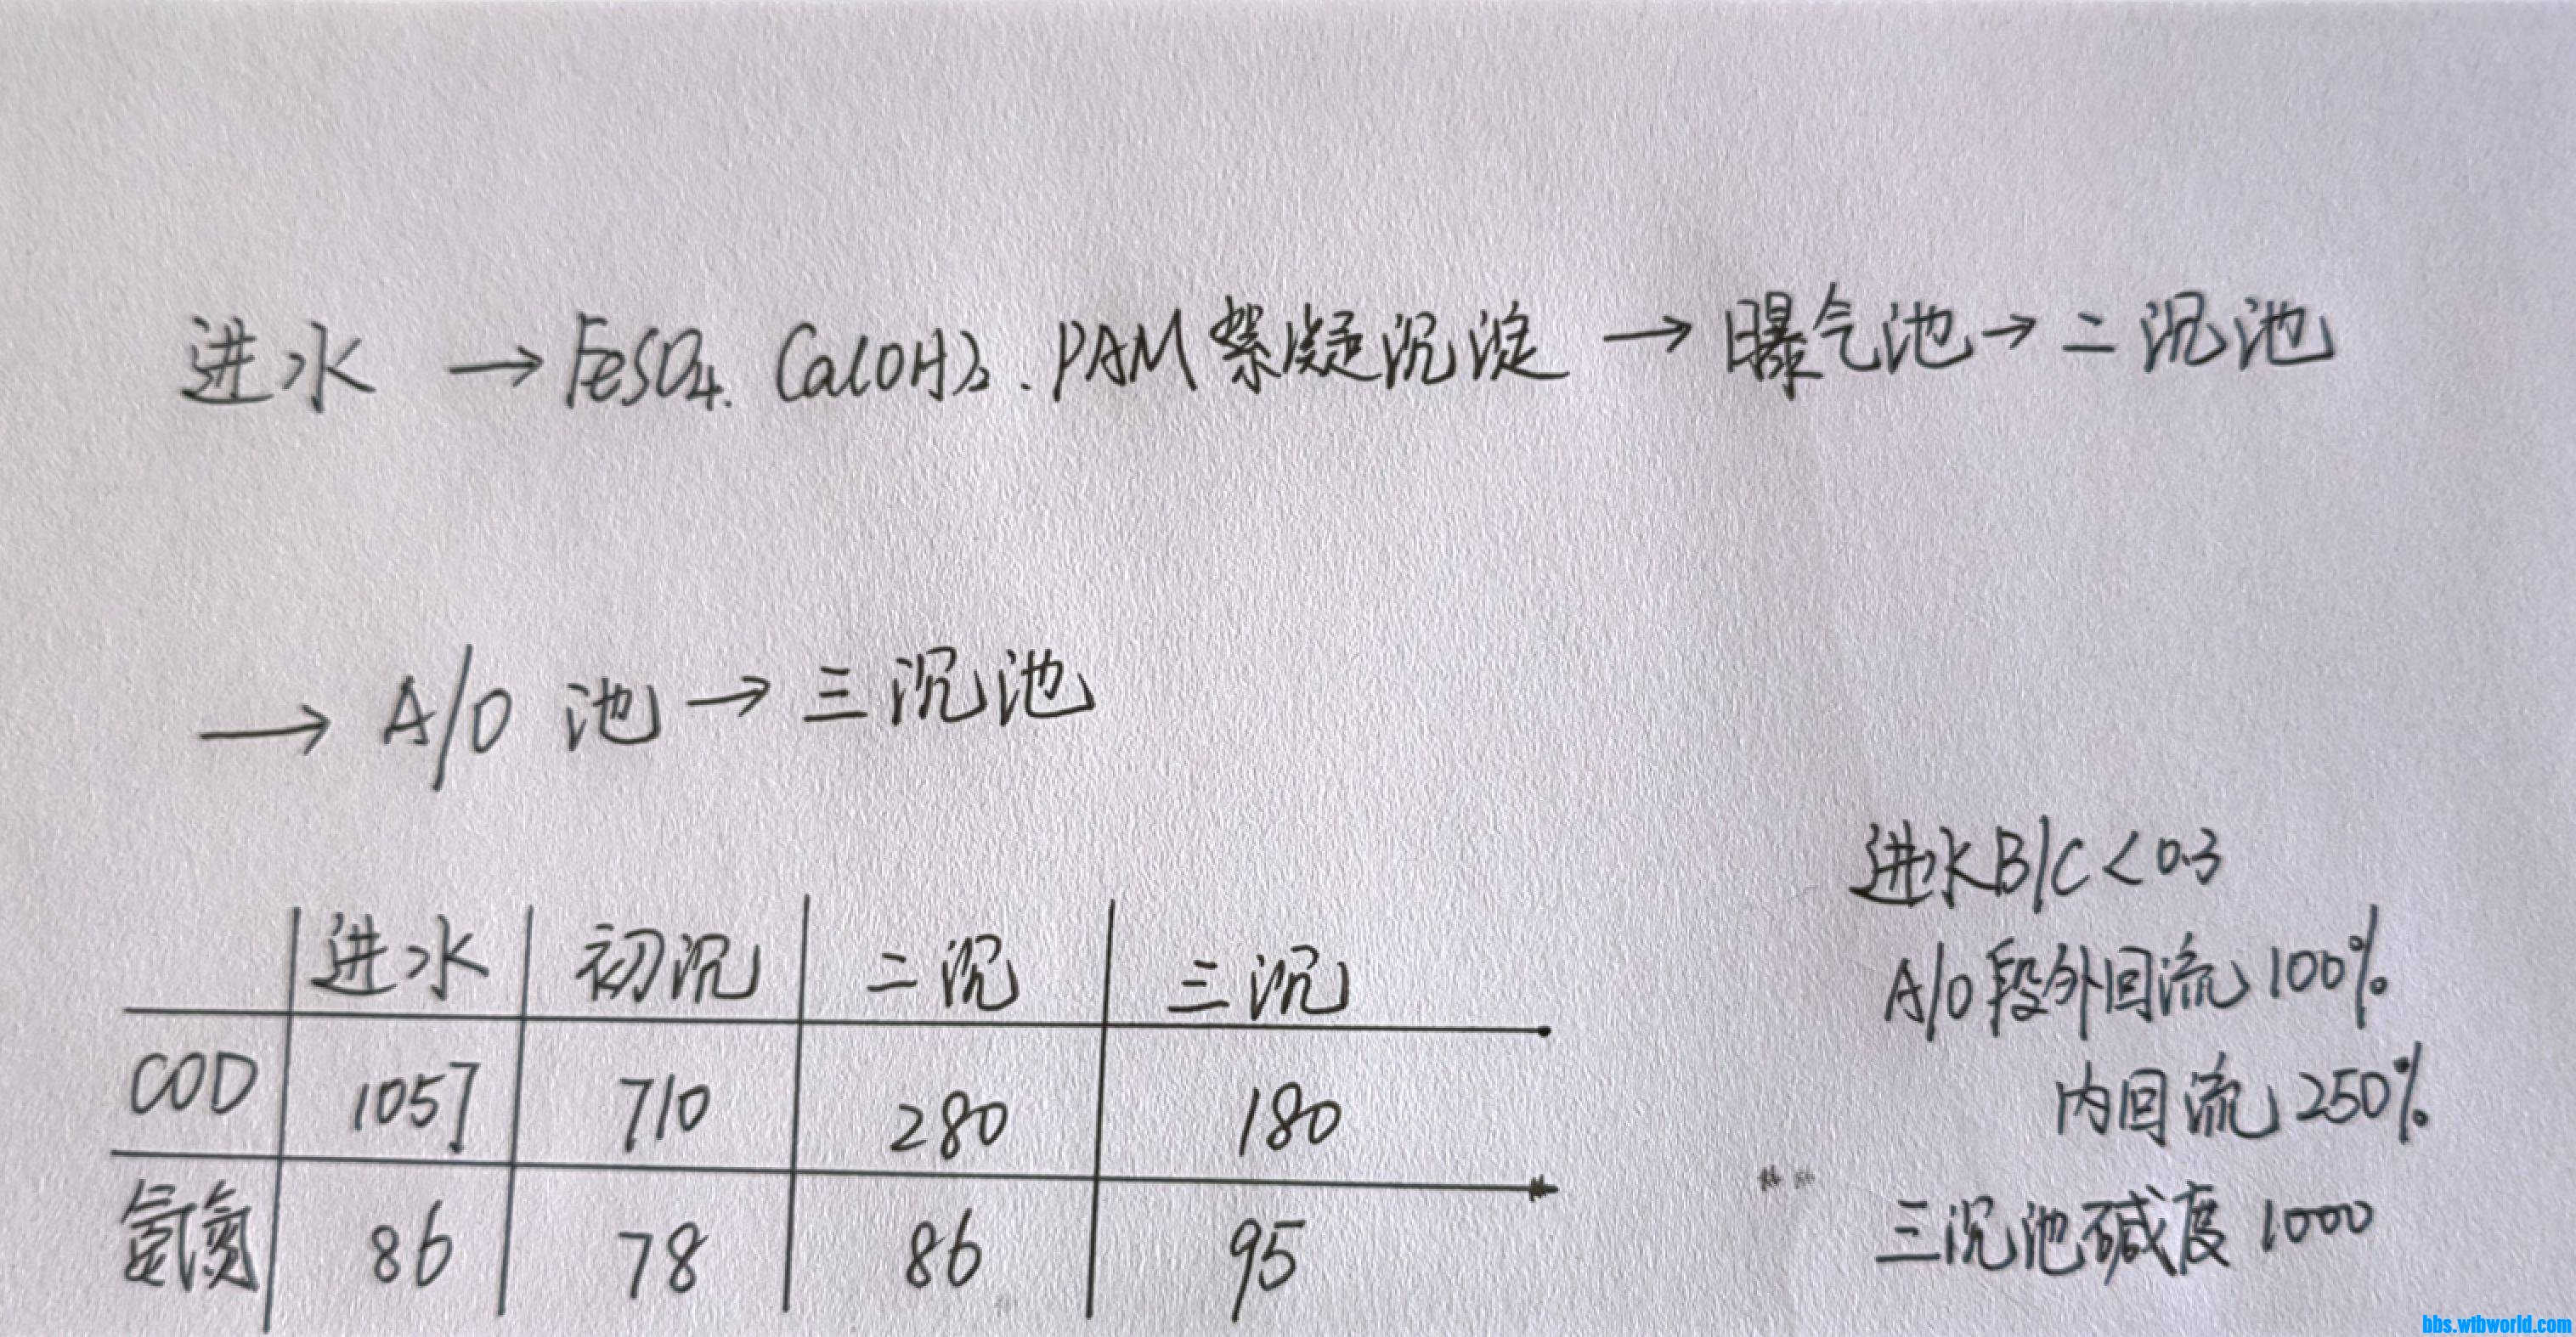 进水 → FeSO4. Ca(OH)2. PAM 絮凝沉淀 → 曝气池 → 二沉池
→ A/O 池 → 三沉池
进水B/C<0.3
A/O段外回流100%
内回流250%
三沉池碱度1000
进水 初沉 二沉 三沉
COD 1057 710 280 180
氨氮 86 78 86 95
bbs.wibworld.com